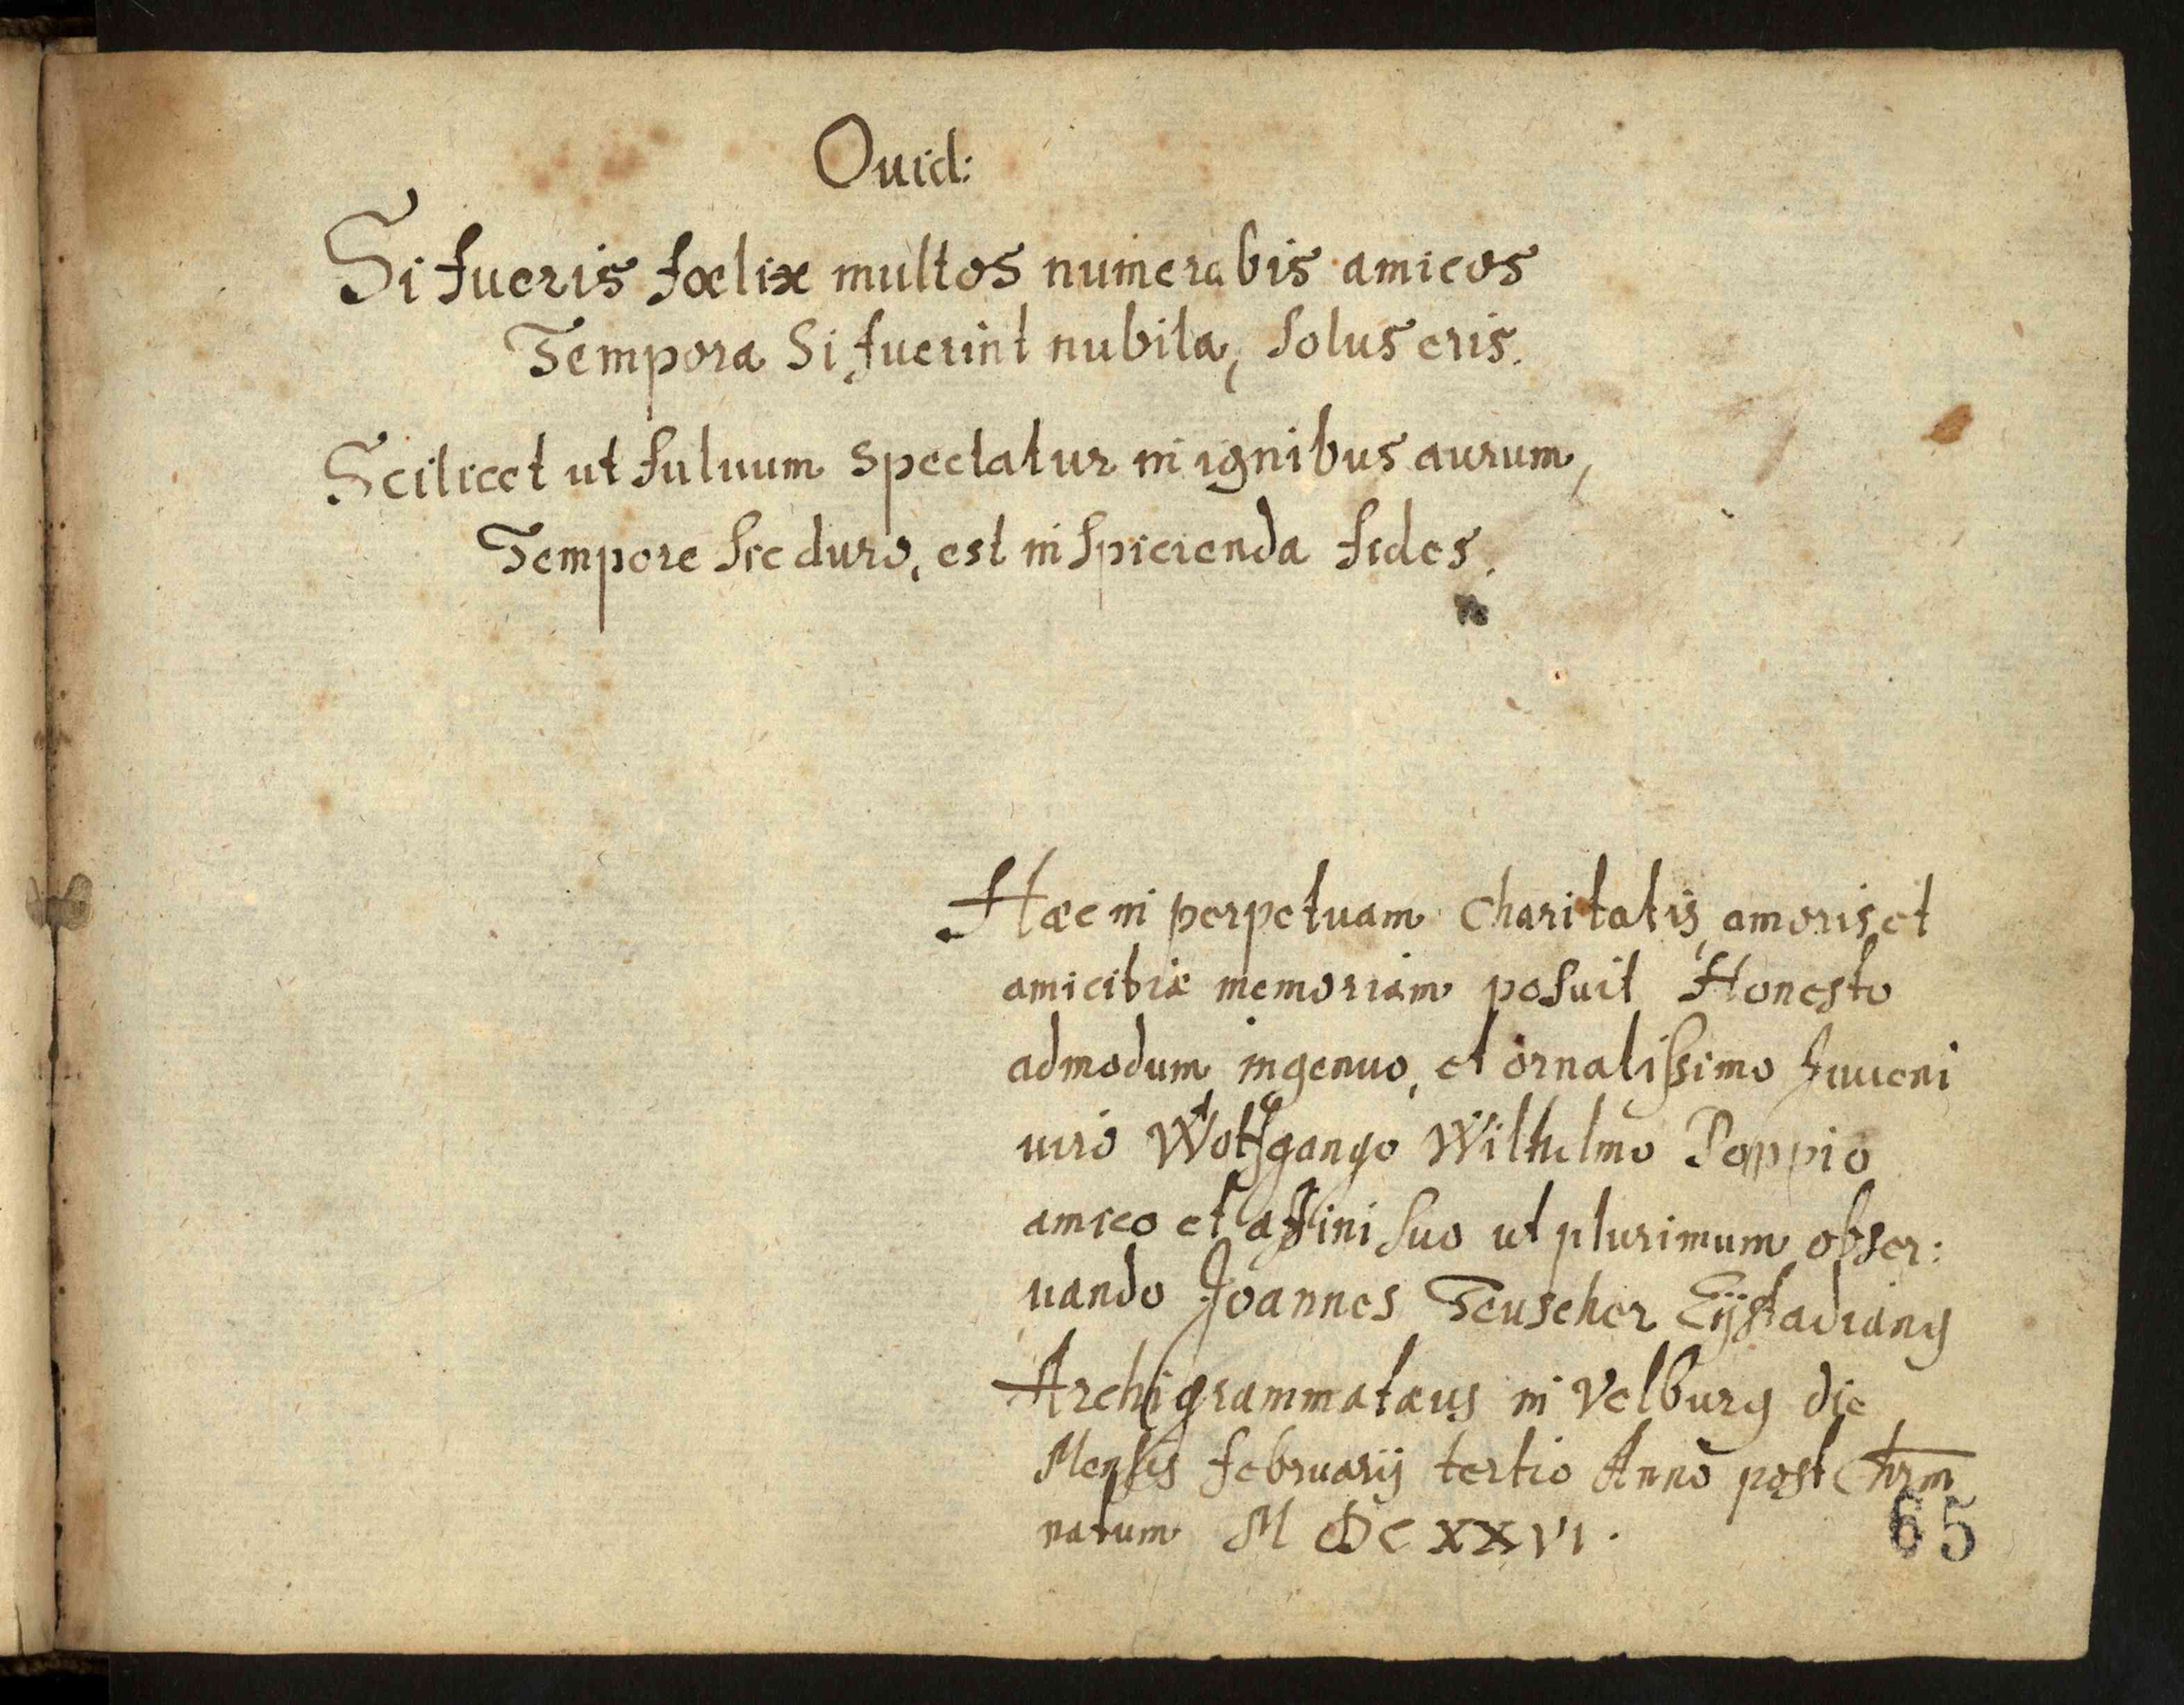 Ouid:
Si fueris fœlix multos numerabis amicos
Tempora Si fuerint nubila, solus eris.
Scilicet ut fuluum spectatur in ignibus aurum,
Tempore sic duro, est inspicienda fides.
Hæc in perpetuam charitatis, amoris, et
amicitiæ memoriam posuit Honesto
admodum, ingenuo, et ornatissimo Iuueni
uiro Wolfgango Wilhelmo Poppio
amico et affini suo ut plurimum obser:
uando Joannes Teuscher Eÿstadianꝰ
Archigrammatæus in Velburg die
Mensis februarij tertio Anno post Chrm
natum M DC XXVI.
65